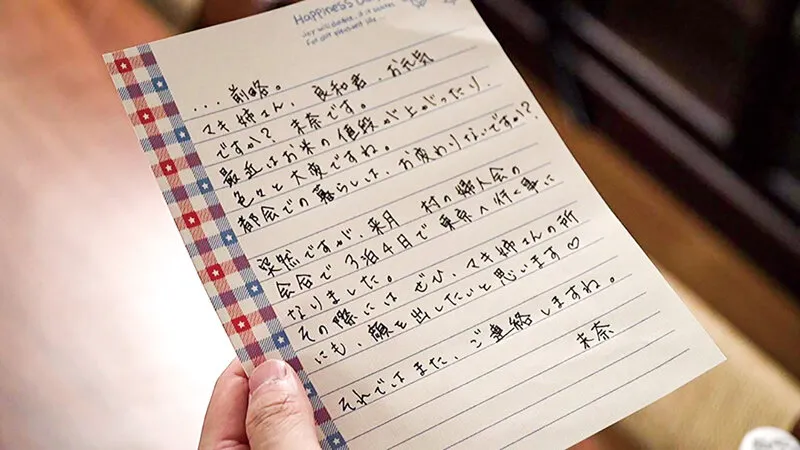 Happiness
...前略。
マキ姉さん、良和君、お元気
ですか？未奈です。
最近はお米の値段が上がったり、
色々と大変ですね。
都会での暮らしは、お変わりないですか？
突然ですが、来月 村の婦人会の
会合で 3泊4日で東京へ行く事に
なりました。
その際にはぜひ、マキ姉さんの所
にも、顔を出したいと思います♡
それではまた、ご連絡しますね。
未奈